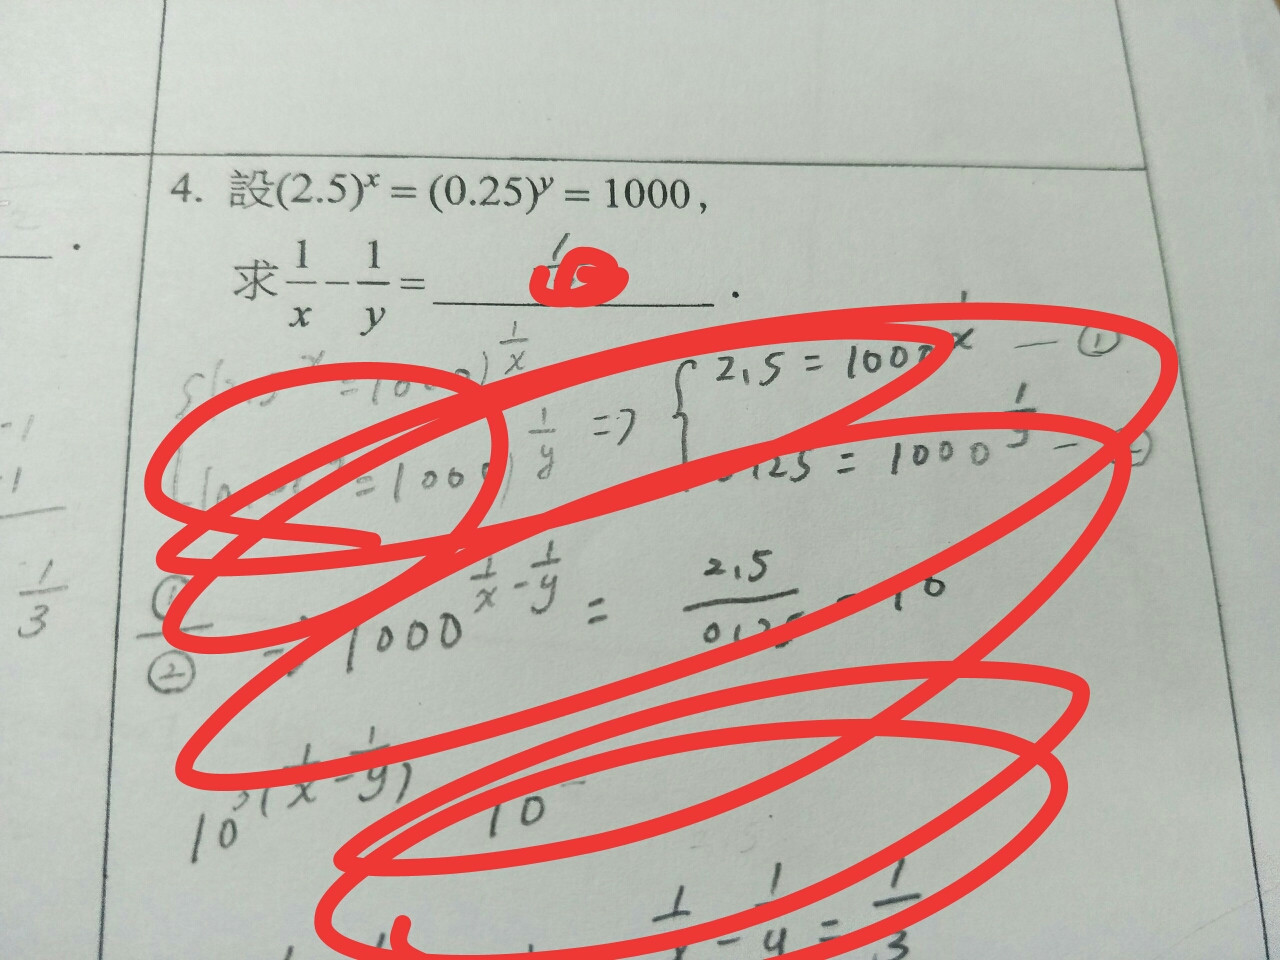 4. 設(2.5)^x = (0.25)^y = 1000,
求 1/x - 1/y = ______ .
= 1000)^(1/x) => { 2.5 = 1000^(1/x) — ①
= 1000)^(1/y) .25 = 1000^(1/y) — ②
①/② => 1000^(1/x - 1/y) = 2.5/0.25 = 10
10^(3(1/x - 1/y)) 10
1/x - 1/y = 1/3
-1
-1
1/3